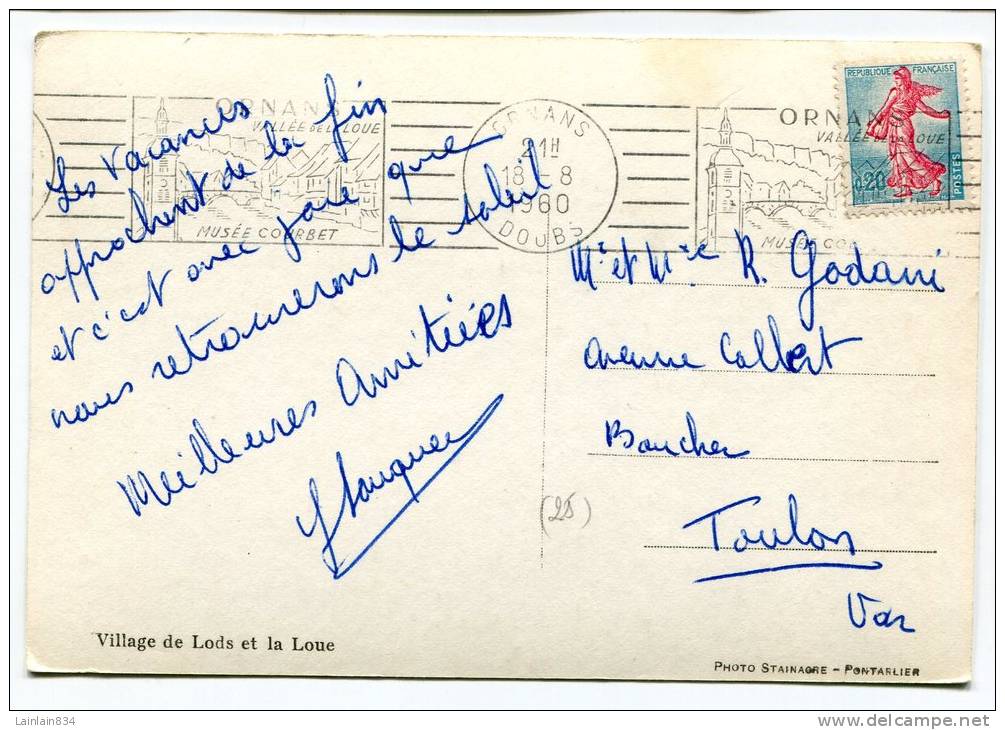 ORNANS
VALLÉE DE LA LOUE
MUSÉE COURBET
ORNANS
21H
18-8
1960
DOUBS
ORNAN
VALLÉE DE LA LOUE
MUSÉE COU
REPUBLIQUE FRANÇAISE
0,20
POSTES
Les vacances
approchent de la fin
et c'est avec joie que
nous retrouverons le soleil
Meilleures Amitiées
Mr et Mme R. Godani
avenue Colbert
Boucher
Toulon
Var
(25)
Village de Lods et la Loue
PHOTO STAINACRE - PONTARLIER
Lainlain834
delcampe.net